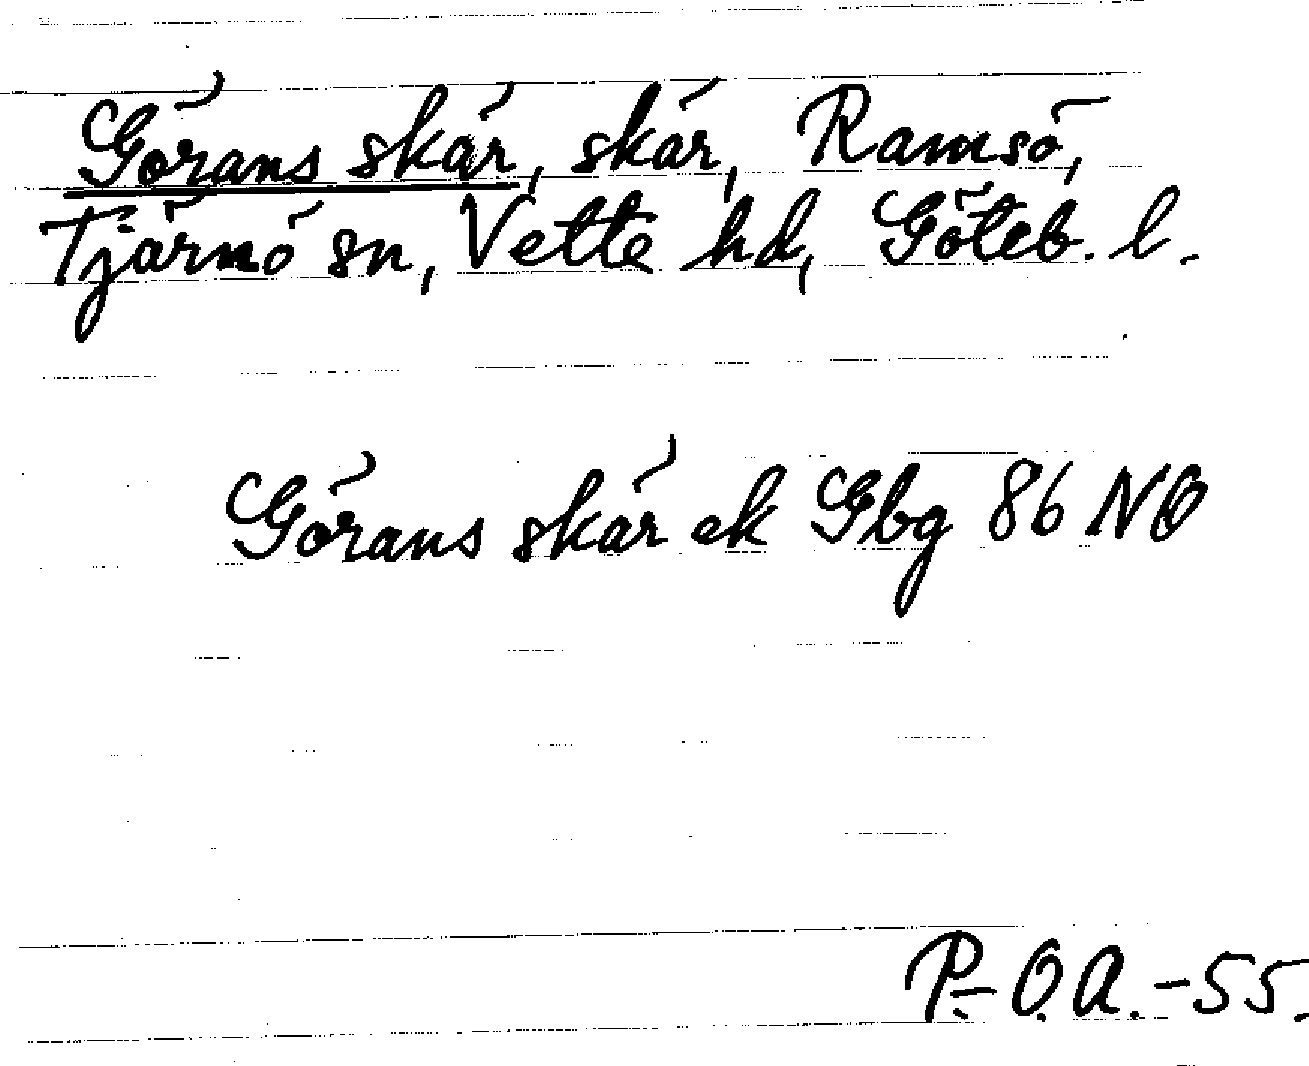 Görans skär, skär, Ramsö,
Tjärnö sn, Vette hd, Göteb. l.
Görans skär ek Gbg 86 NO
P.-O.A.-55.